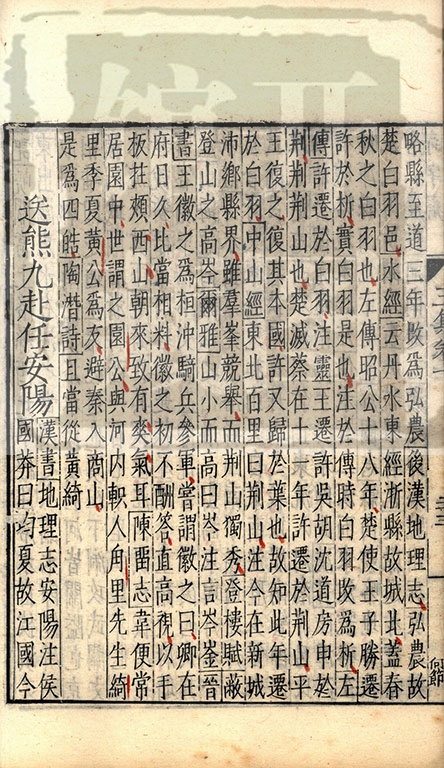 略縣至道三年改爲弘農後漢地理志弘農故
楚白羽邑水經云丹水東經淅縣故城北蓋春
秋之白羽也左傳昭公十八年楚使王子勝遷
許於析實白羽是也注於傳時白羽改爲析左
傳許遷於白羽注靈王遷許吳胡沈道房申於
荆荆荆山也楚滅蔡在十年許遷於荆山平
王復之復其本國許又歸於葉也故知此年遷
於白羽中山經東北百里曰荆山注今在新城
沛鄉縣界雖羣峯競舉而荆山獨秀登樓賦蔽
登山之高岑爾雅山小而高曰岑注言岑崟晉
書王徽之爲桓沖騎兵參軍嘗謂徽之曰卿在
府日久比當相料徽之初不酬答直高視以手
板拄頰西山朝來致有爽氣耳陳留志韋便常
居園中世謂之園公與河内軹人角里先生綺
里季夏黄公爲友避秦入商山
是爲四皓陶潛詩且當從黄綺
送熊九赴任安陽
漢書地理志安陽注侯
國莽曰均夏故江國今